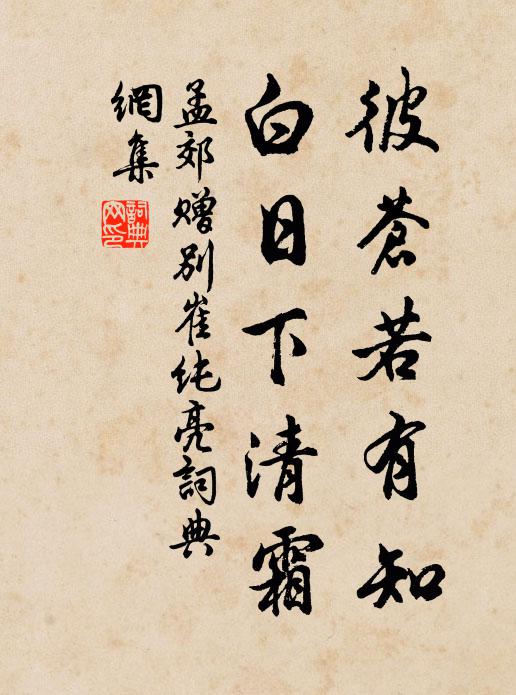 彼蒼若有知
白日下清霜
孟郊贈別崔純亮詞典
網集
詞典
网印